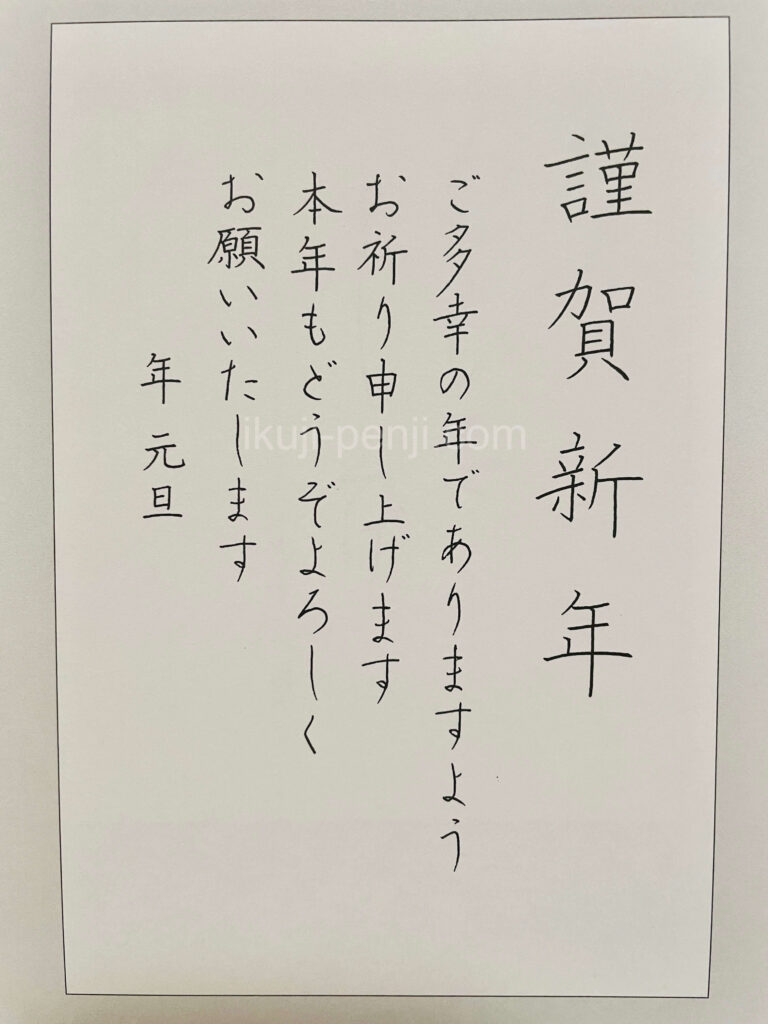 謹賀新年
ご多幸の年でありますよう
お祈り申し上げます
本年もどうぞよろしく
お願いいたします
年 元旦
ikuji-penji.com